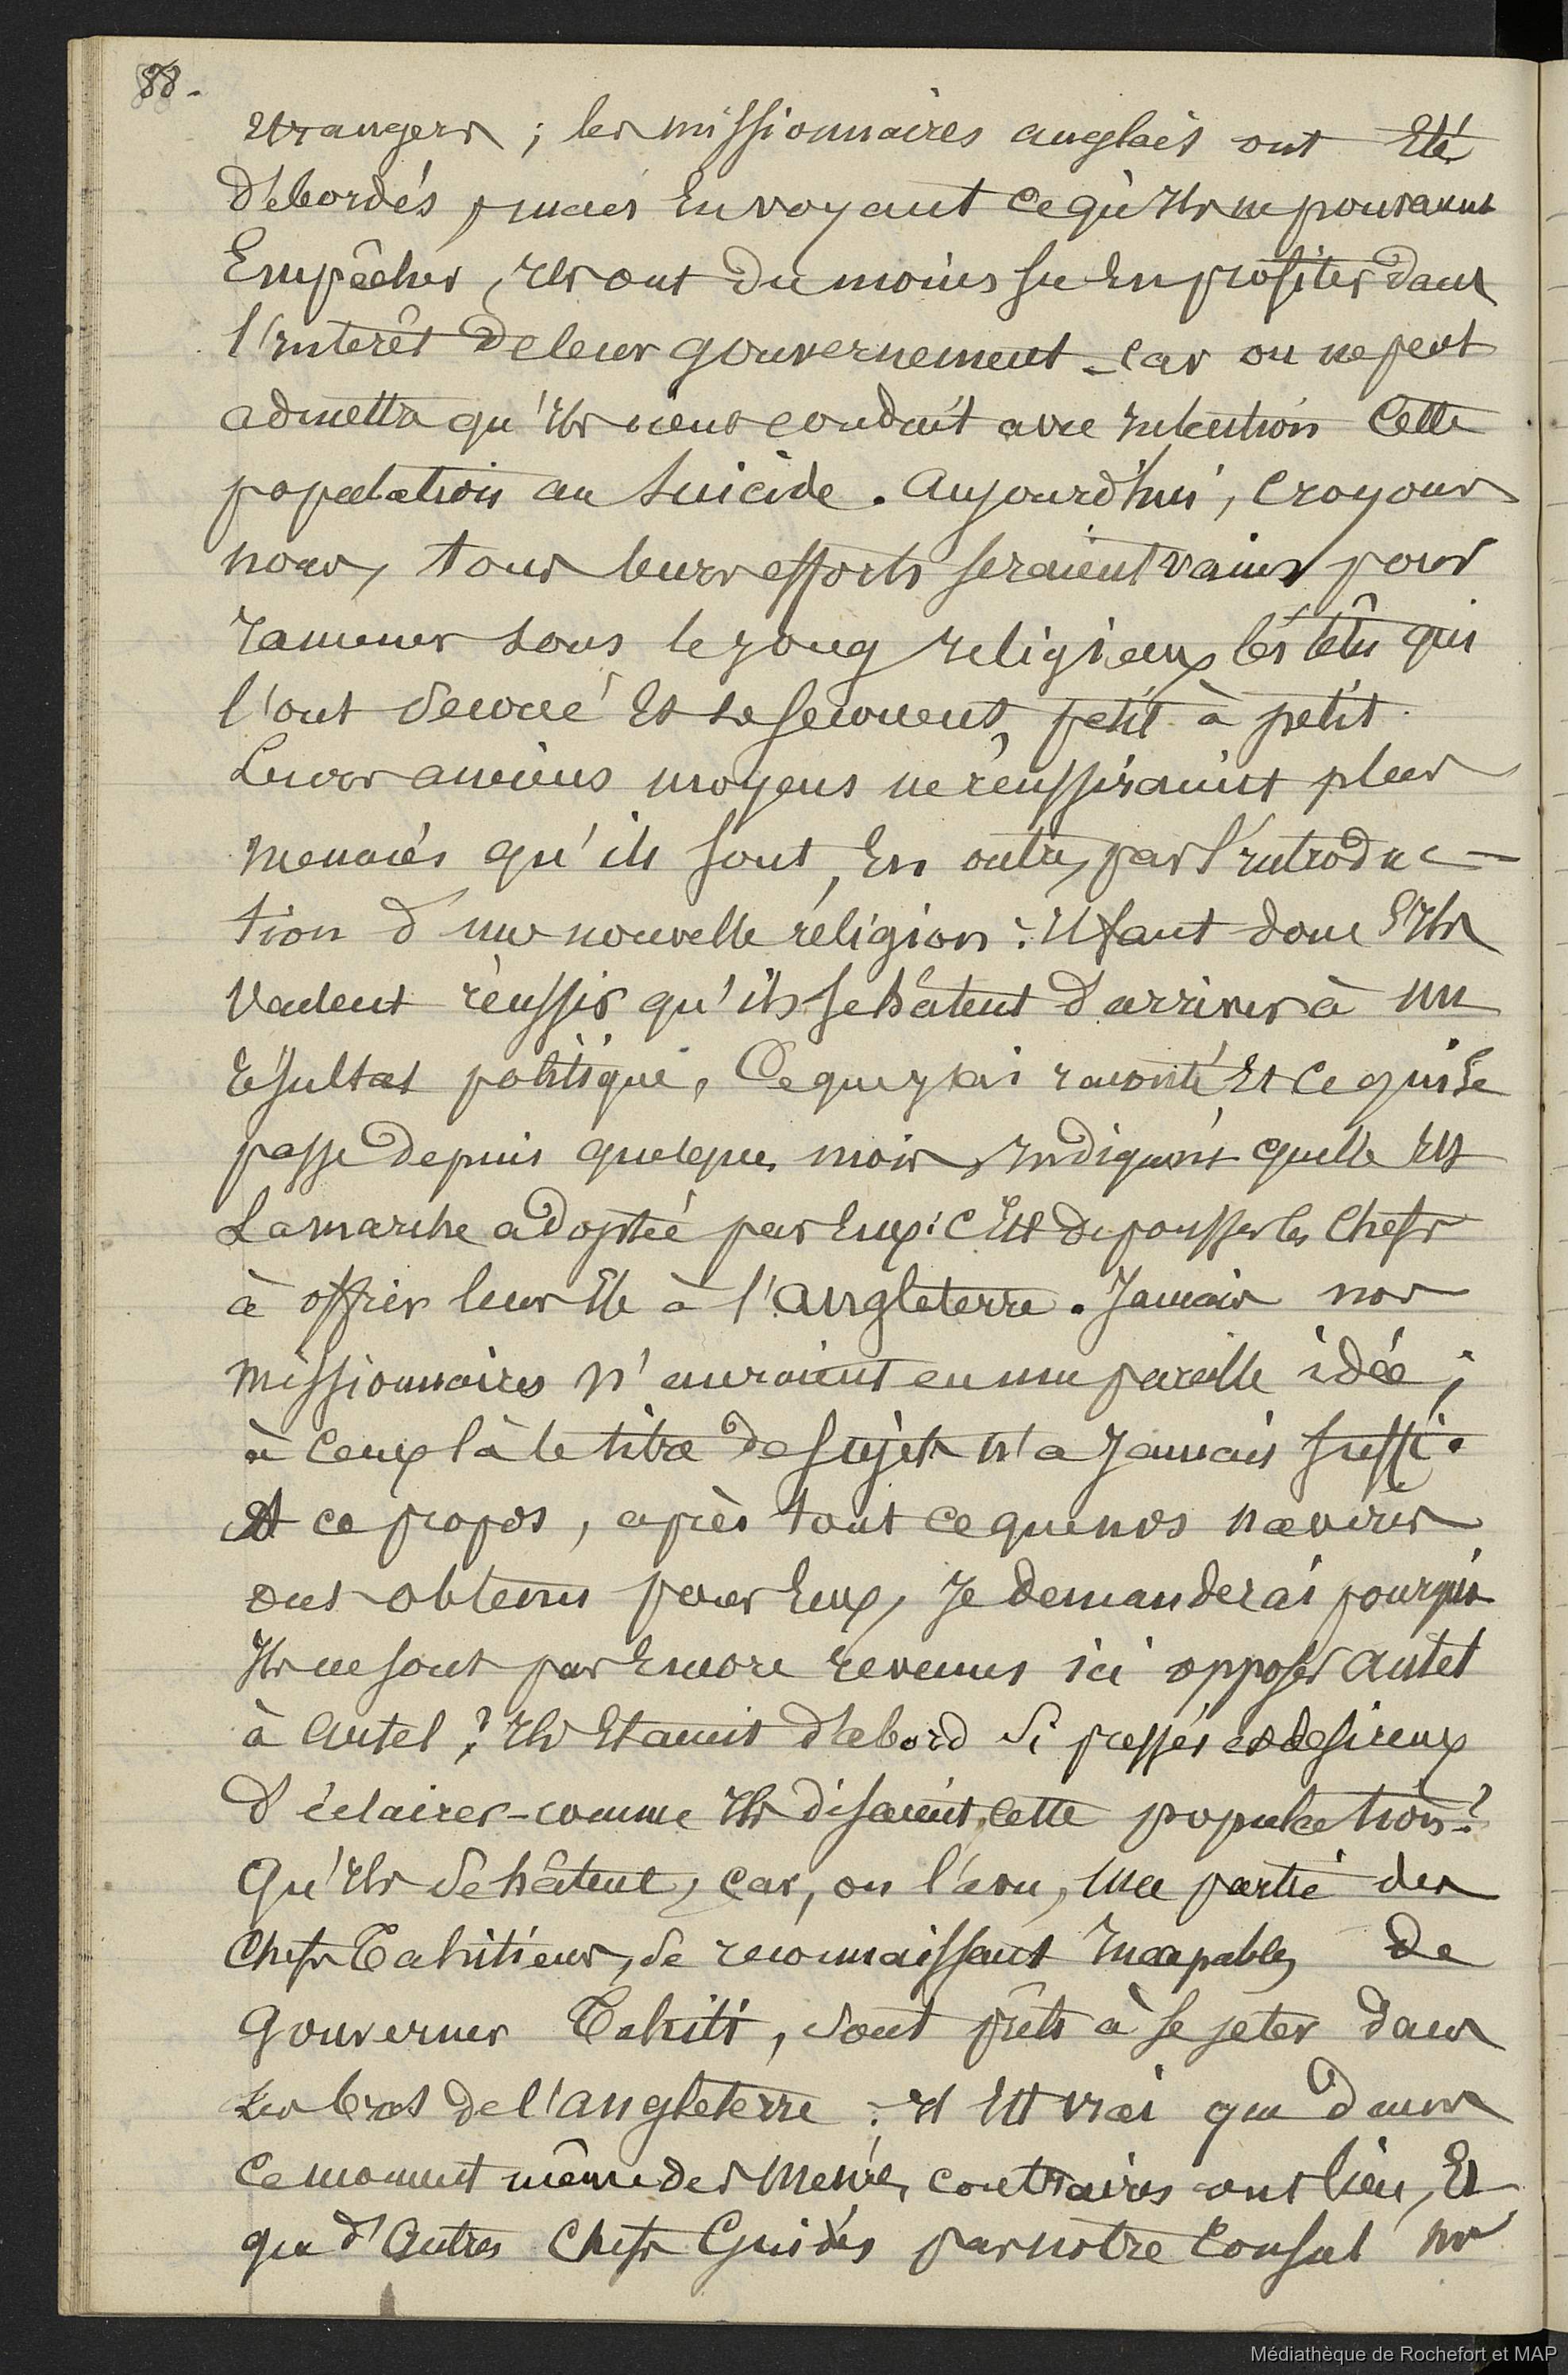 88.
étrangers ; les missionnaires anglais ont été
débordés ; mais en voyant ce qu'ils ne pouvaient
empêcher, ils ont du moins su en profiter dans
l'intérêt de leur gouvernement - car on ne peut
admettre qu'ils aient conduit avec intention cette
population au suicide. Aujourd'hui, croyons
nous, tous leurs efforts seraient vains pour
ramener sous le joug religieux les têtes qui
l'ont secoué et le secouent petit à petit.
Leurs anciens moyens ne réussiraient plus
menacés qu'ils sont, en outre, par l'introduc-
tion d'une nouvelle réligion : il faut donc s'ils
veulent réussir qu'ils se hâtent d'arriver à un
résultat politique. Ce que j'ai raconté et ce qui se
passe depuis quelques mois indiquent quelle est
la marche adoptée par eux : c'est de pousser les chefs
à offrir leur île à l'Angleterre. Jamais nos
missionnaires n'auraient eu une pareille idée ;
à ceux là le titre de sujets n'a jamais suffi.
A ce propos, après tout ce que nos navires
ont obtenu pour eux, je demanderai pourquoi
ils ne sont pas encore revenus ici opposer autel
à autel ? Ils étaient d'abord si pressés et desireux
d'éclairer - comme ils disaient, cette population ?
Qu'ils se hâtent, car, on l'a vu, une partie des
chefs Tahitiens, se reconnaissant incapables de
gouverner Tahiti, sont prêts à se jeter dans
les bras de l'Angleterre : il est vrai que dans
ce moment même des menées contraires ont lieu, et
que d'autres chefs guidés par notre consul Mr
Médiathèque de Rochefort et MAP